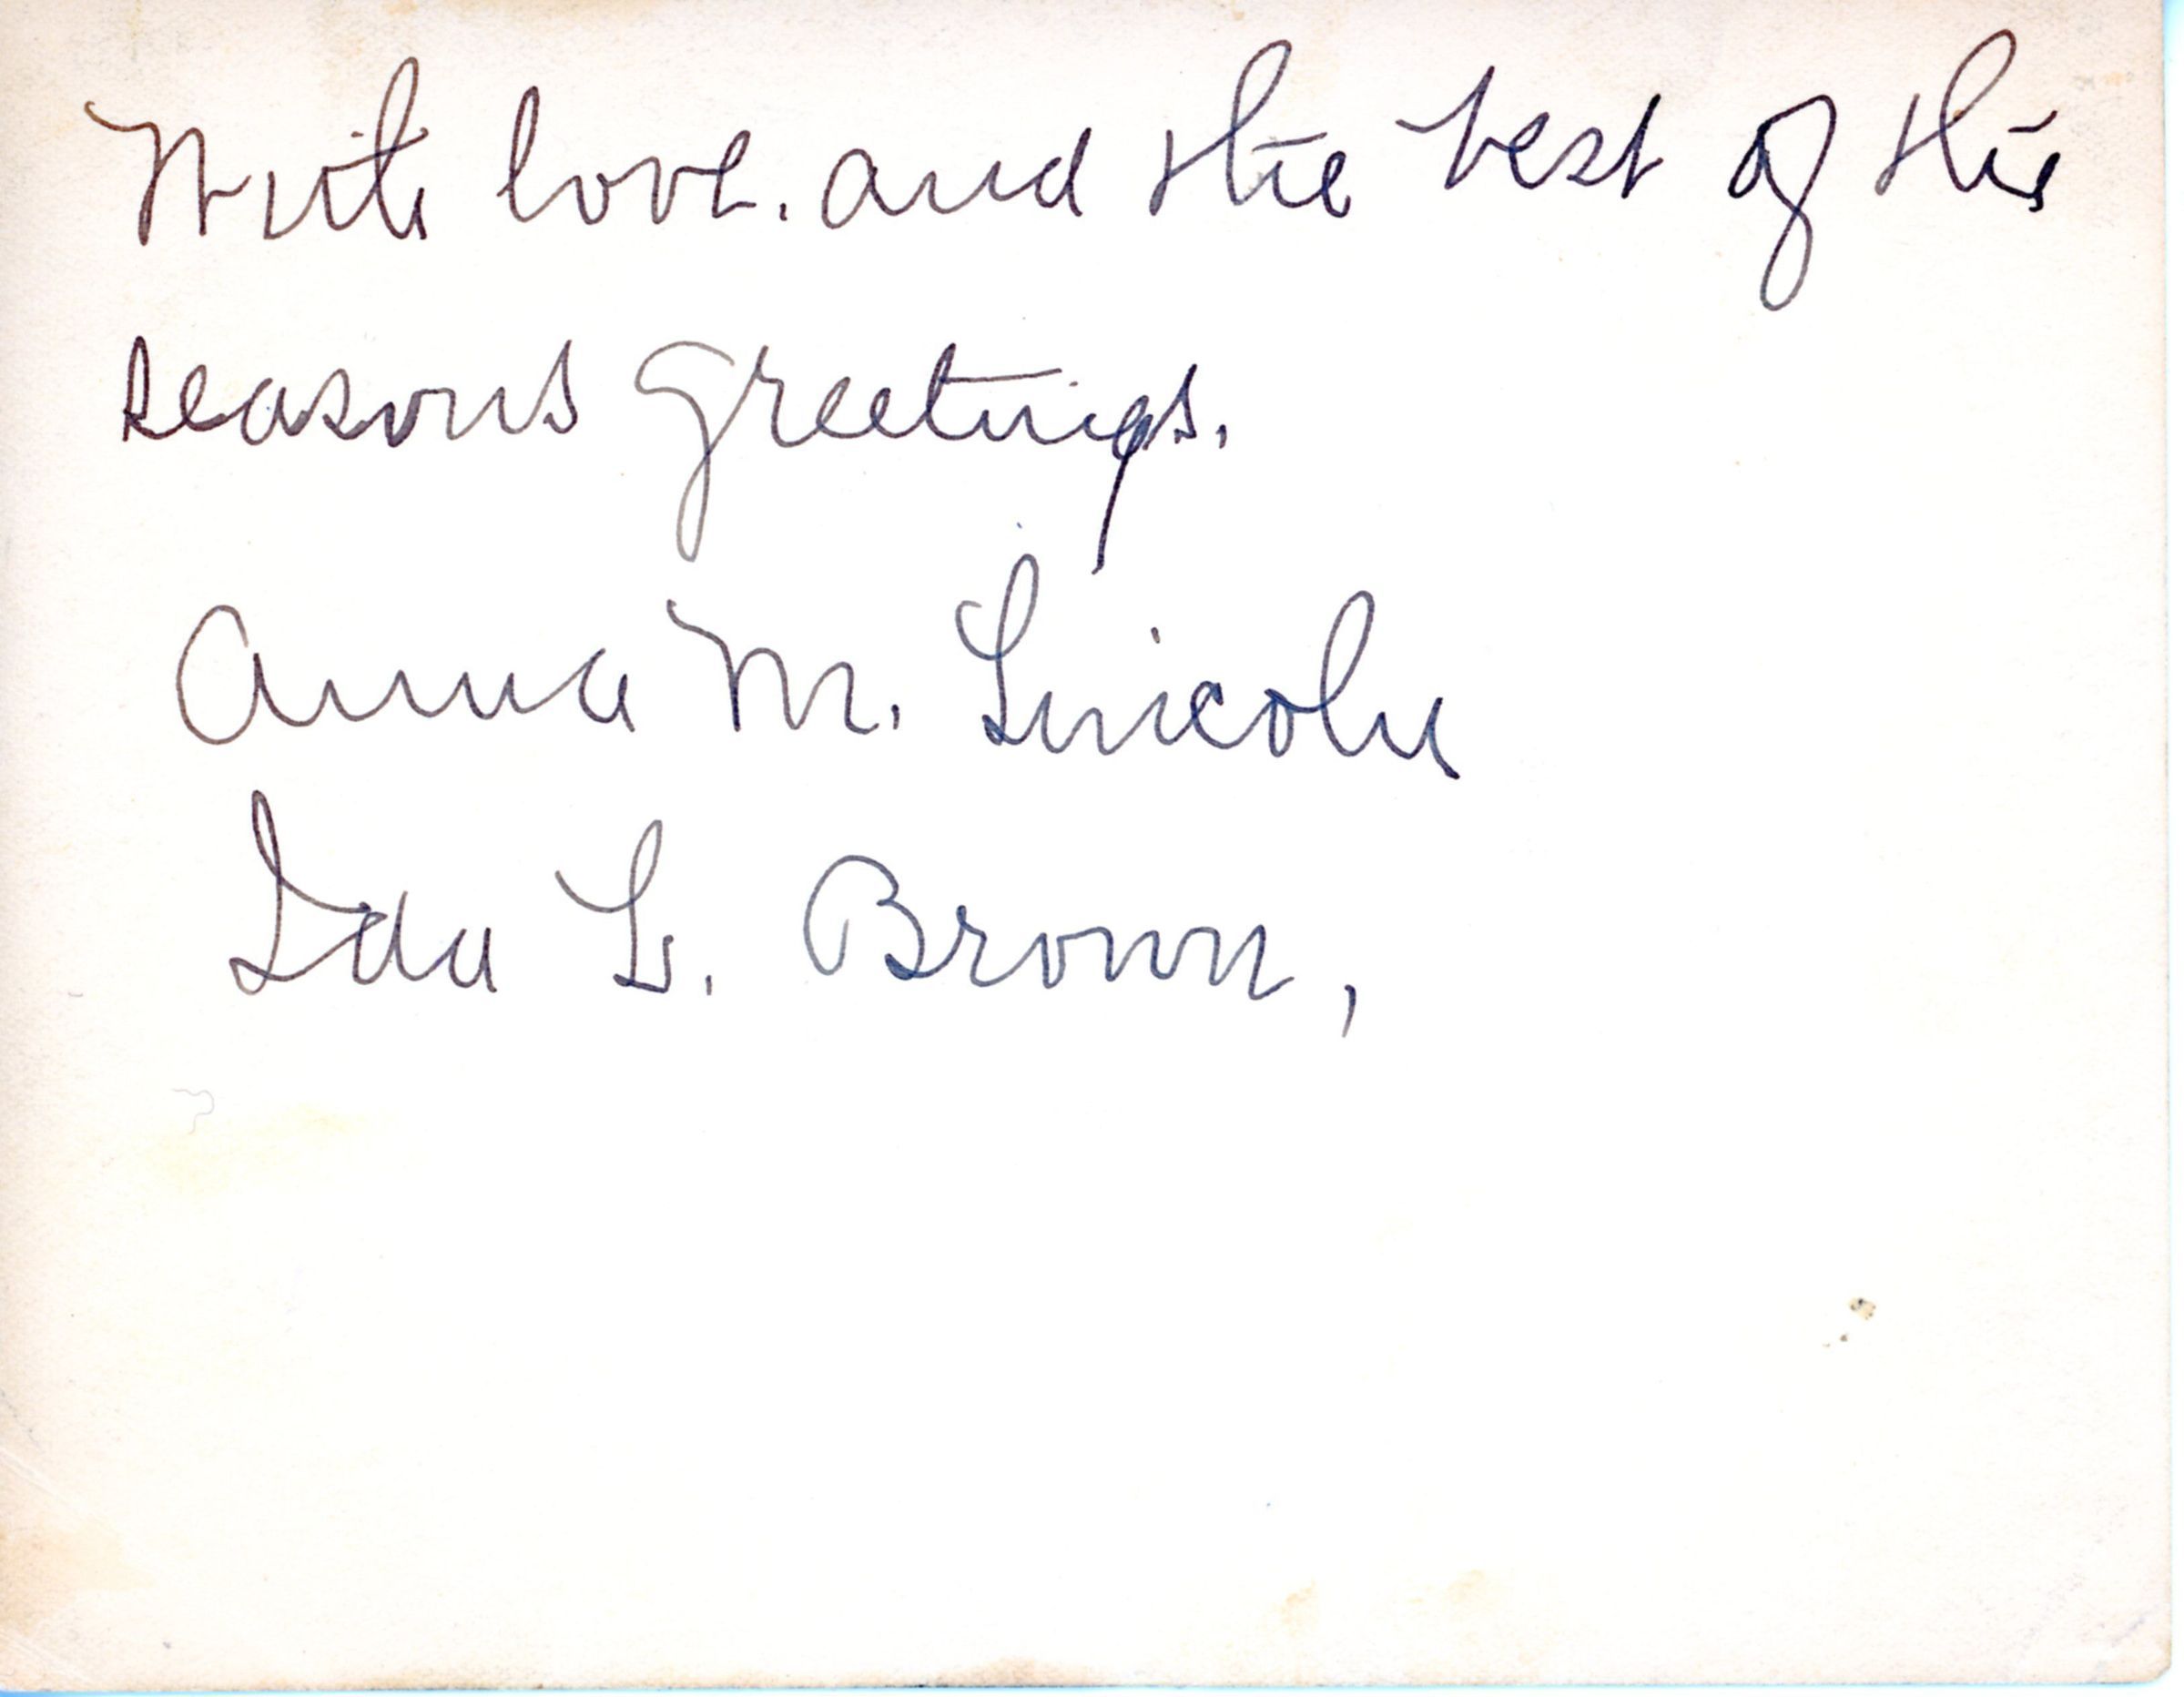 With love. and the best of the
seasons greetings.
Anna M. Lincoln
Ida L. Brown,